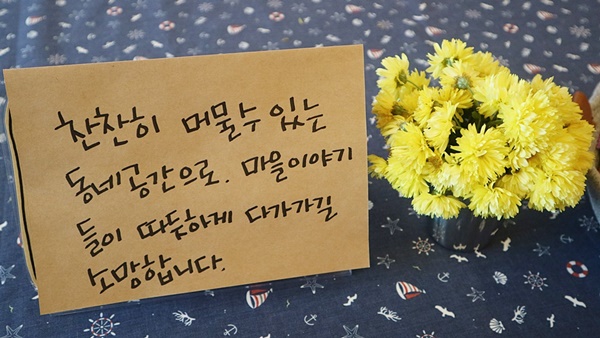 찬찬히 머물수 있는
동네공간으로. 마을이야기
들이 따듯하게 다가가길
소망합니다.